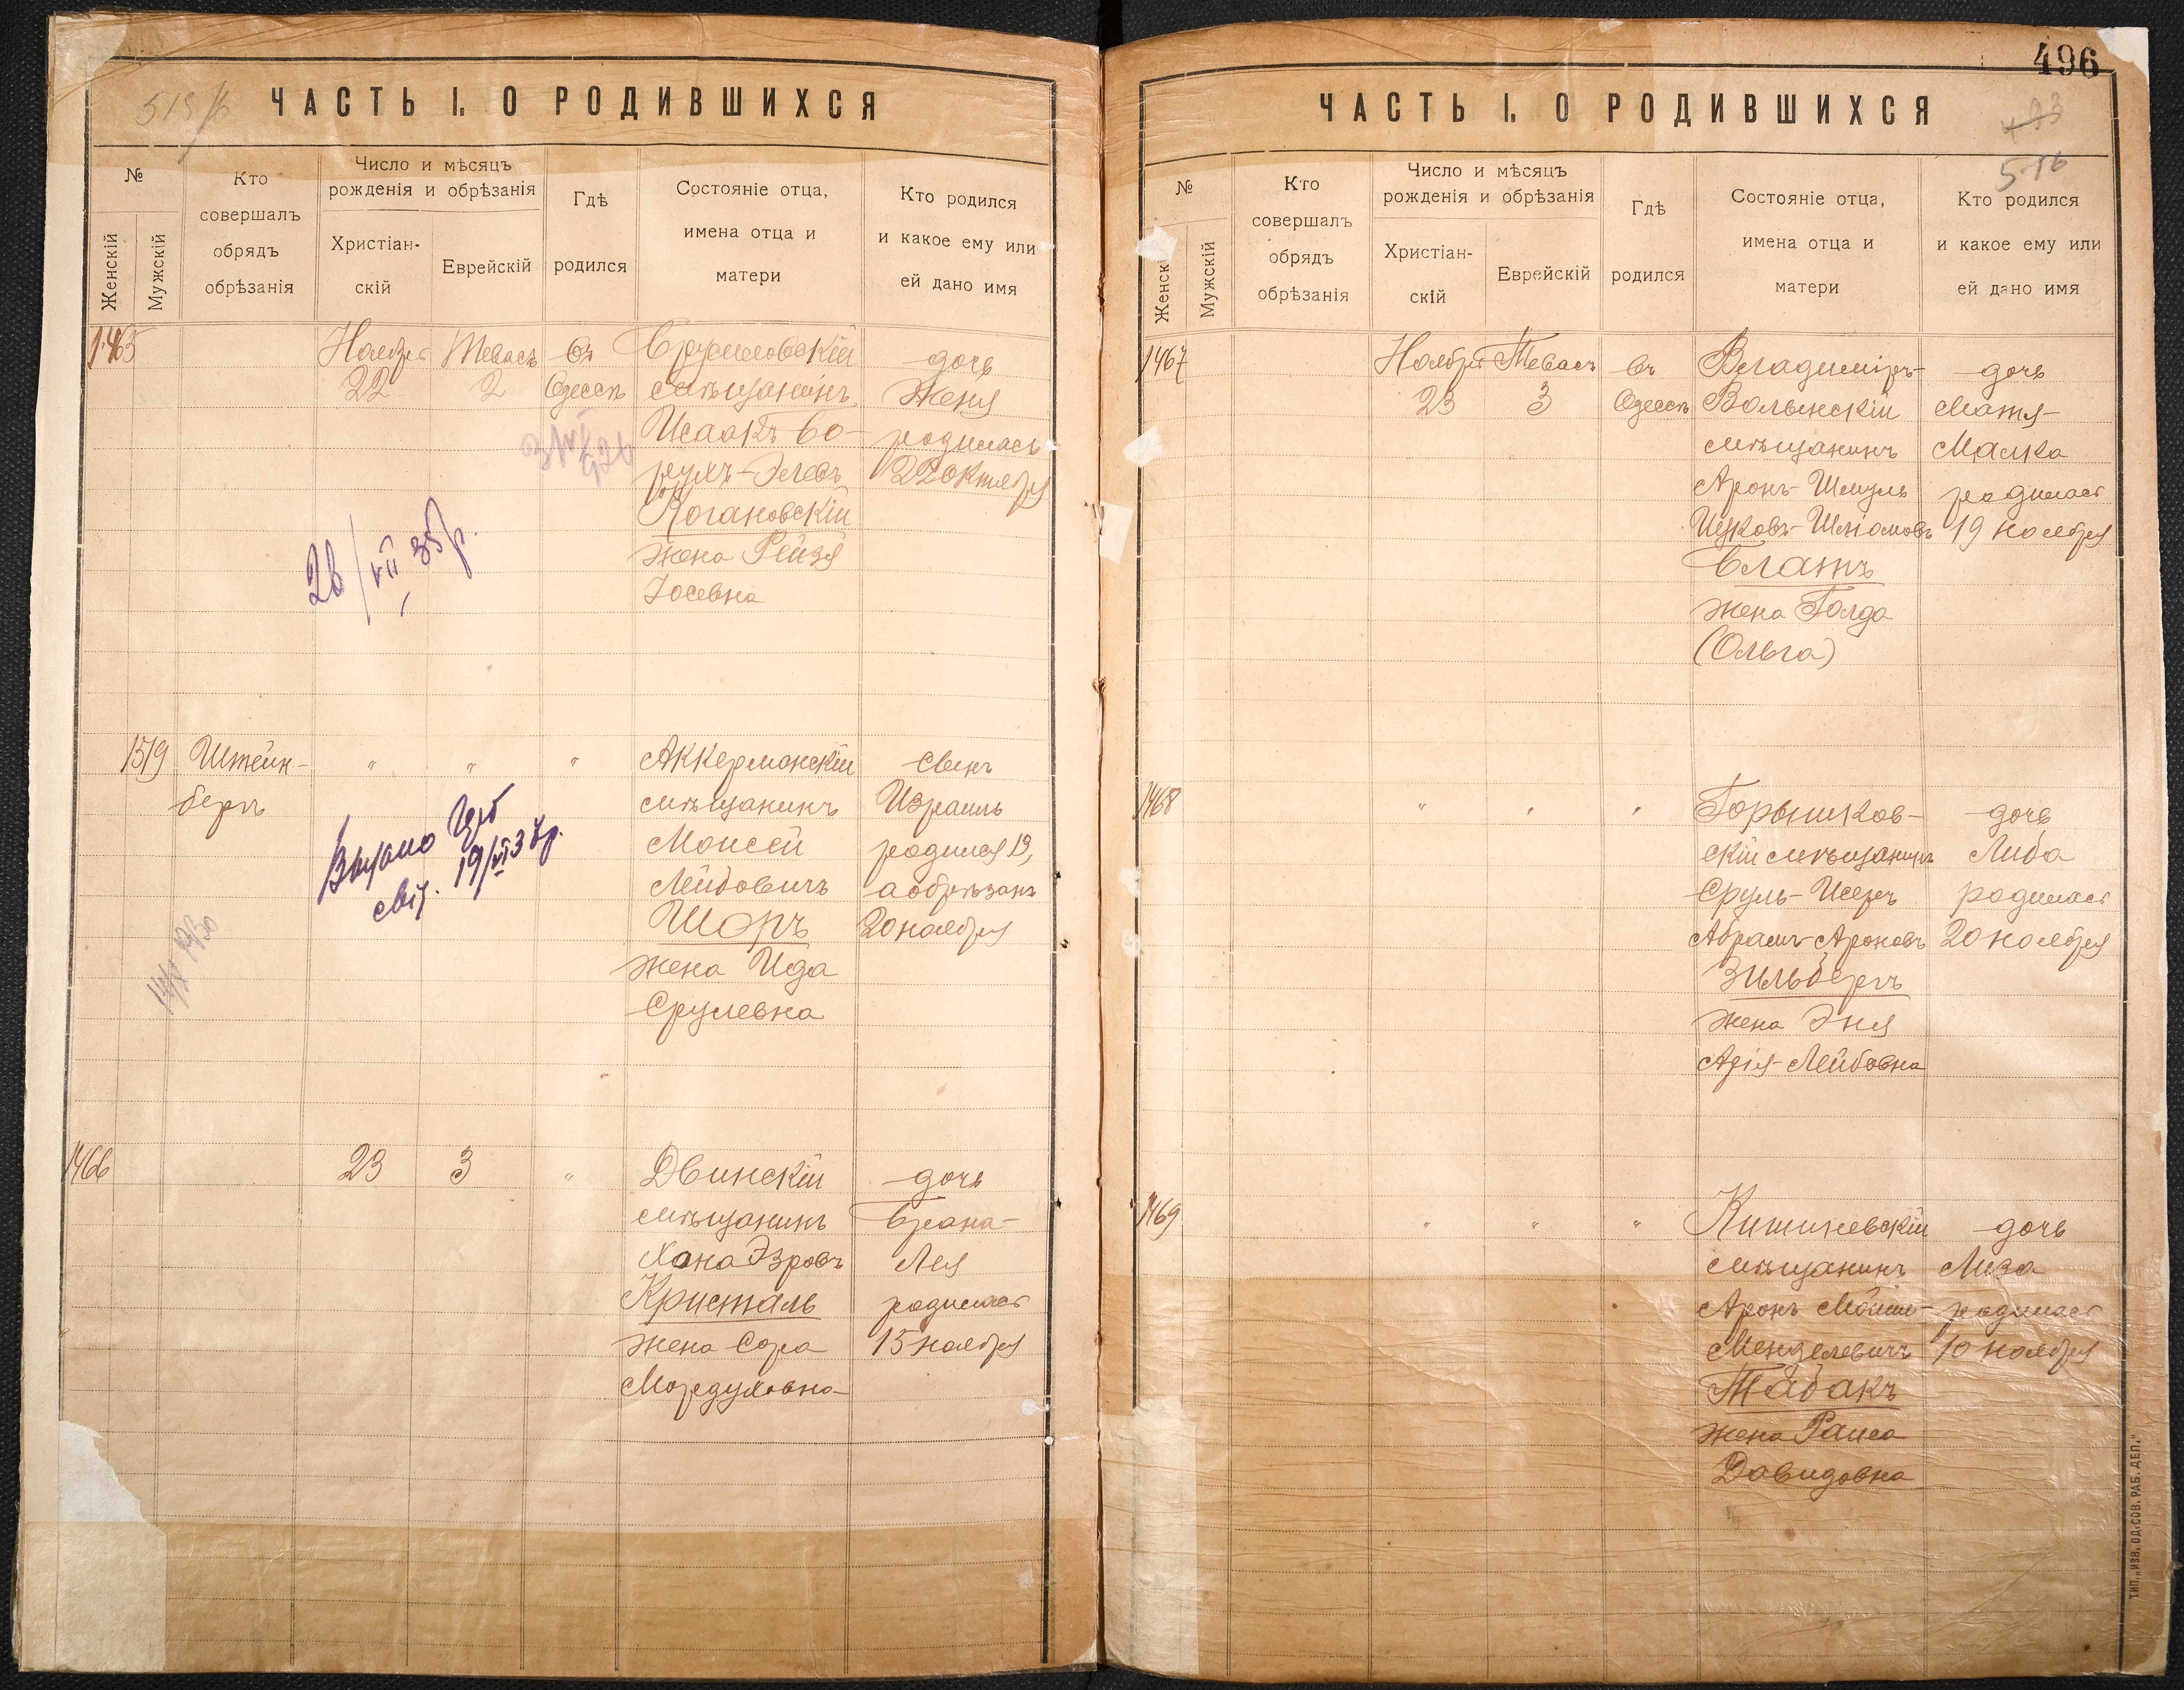 515/6
ЧАСТЬ I. О РОДИВШИХСЯ
№
Женскій
Мужскій
Кто
совершалъ
обрядъ
обрѣзанія
Число и мѣсяцъ
рожденія и обрѣзанія
Христіан-
скій
Еврейскій
Гдѣ
родился
Состояніе отца,
имена отца и
матери
Кто родился
и какое ему или
ей дано имя
1465
Ноября
22
Тевасъ
2
въ
Одессѣ
мѣщанинъ
Исаакъ Бо-
рухъ-
Рогановскій
жена Рейзя
Іосевна
дочь
Женя
родилась
22 октября
26/VII 35р.
1519
Штейн-
бергъ
"
"
"
Аккерманскій
мѣщанинъ
Моисей
Лейбовичъ
Шоръ
жена Ида
Срулевна
сынъ
Израиль
родился 13,
а обрѣзанъ
20 ноября
Видано
свід. 19/VI 37р.
1466
23
3
"
Двинскій
мѣщанинъ
Хона Эзровъ
Кристаль
жена Сора
Мордуховна
дочь
Брана-
Лея
родилась
15 ноября
496
493
516
ЧАСТЬ I. О РОДИВШИХСЯ
№
Женскій
Мужскій
Кто
совершалъ
обрядъ
обрѣзанія
Число и мѣсяцъ
рожденія и обрѣзанія
Христіан-
скій
Еврейскій
Гдѣ
родился
Состояніе отца,
имена отца и
матери
Кто родился
и какое ему или
ей дано имя
1467
Ноября
23
Тевасъ
3
въ
Одессѣ
Владиміръ-
Волынскій
мѣщанинъ
Аронъ-Шмуль
Ицковъ-Шліомовъ
Блатъ
жена Голда
(Ольга)
дочь
Матя-
Малка
родилась
19 ноября
1468
"
"
"
Горышков-
скій мѣщанинъ
Сруль-Исеръ
Абрамъ-Ароновъ
Зильбергъ
жена Эня
Арія-Лейбовна
дочь
Либа
родилась
20 ноября
1469
"
"
"
Кишиневскій
мѣщанинъ
Аронъ Мойше-
Менделевичъ
Табакъ
жена Раиса
Давидовна
дочь
Лиза
родилась
10 ноября
ТИП. „ИЗВ. ОД. СОВ. РАБ. ДЕП."